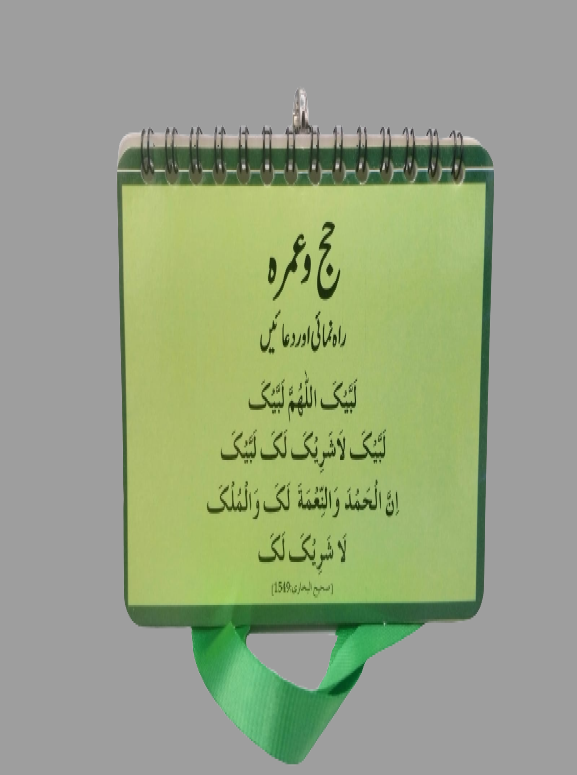 حج وعمرہ
راہ نمائی اور دعائیں
لَبَّیْکَ اللّٰھُمَّ لَبَّیْکَ
لَبَّیْکَ لَاشَرِیْکَ لَکَ لَبَّیْکَ
اِنَّ الْحَمْدَ وَالنِّعْمَةَ لَکَ وَالْمُلْکَ
لَا شَرِیْکَ لَکَ
(صحیح البخاری:1549)